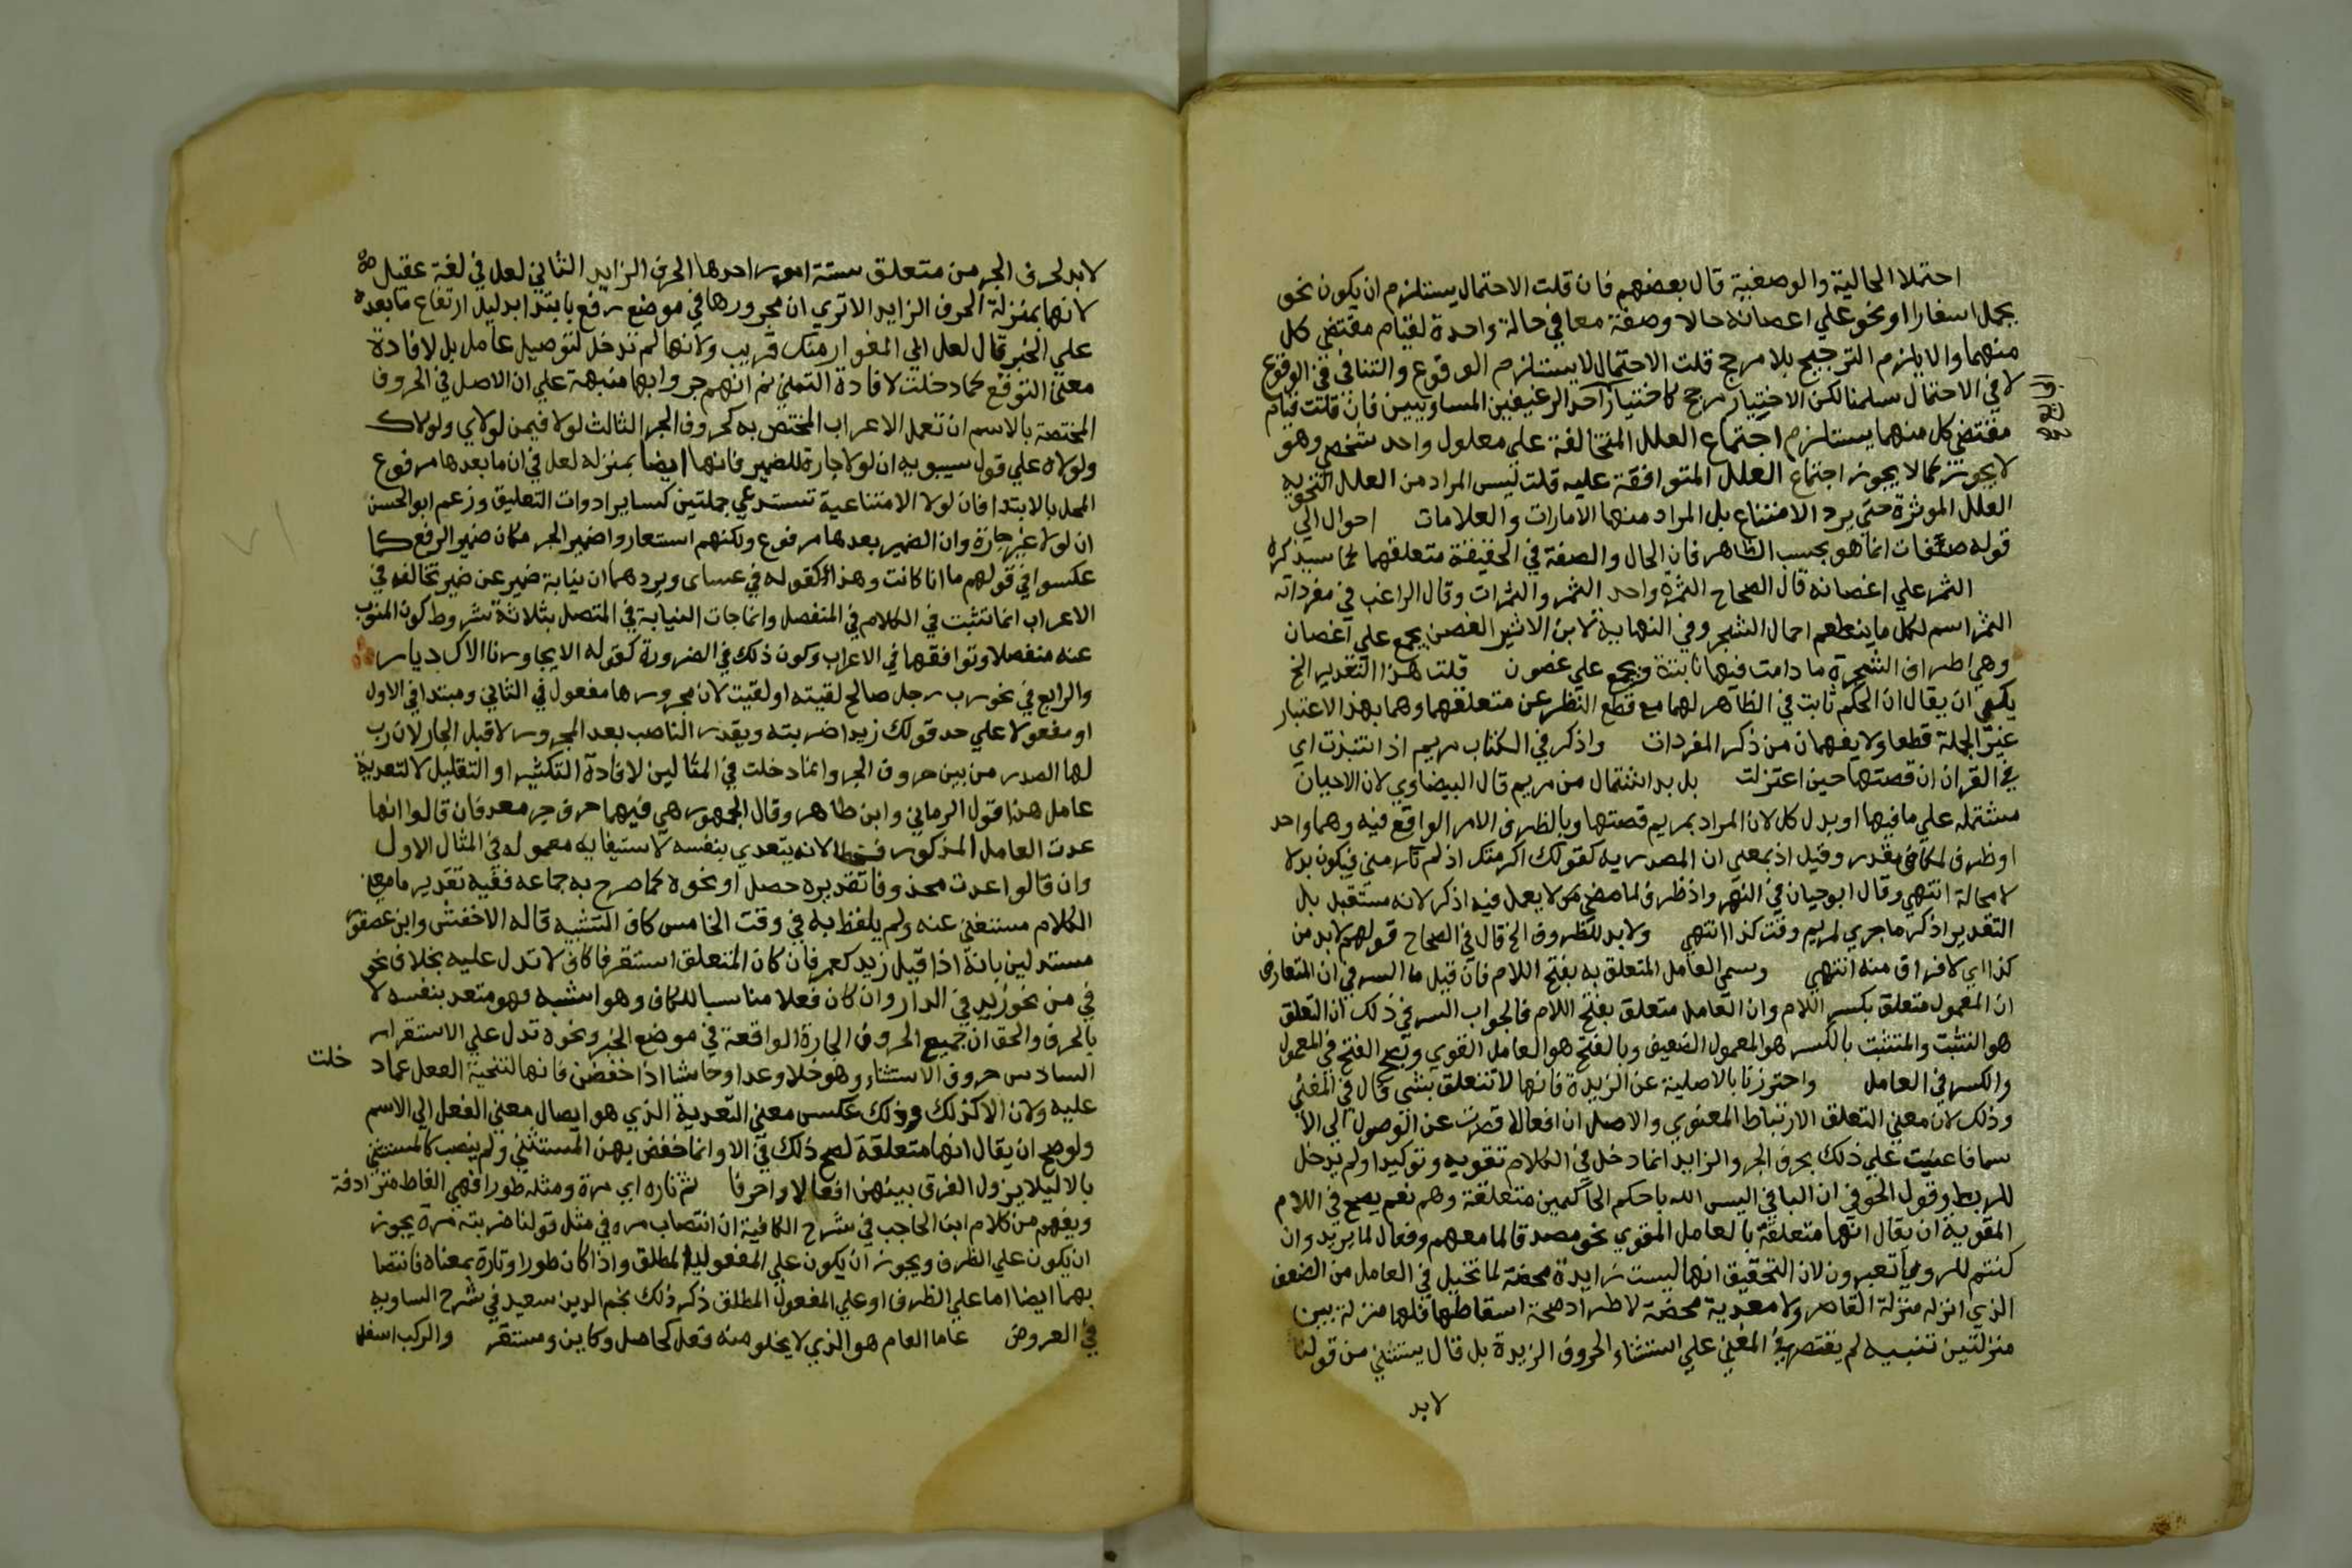 احتملا الحالية والوصفية قال بعضهم فان قلت الاحتمال يستلزم ان يكون نحو
يحمل اسفارا ونحو علي اغصانه حالا وصفة معا في حالة واحدة لقيام مقتضي كل
منهما والا يلزم الترجيح بلا مرجح قلت الاحتمال لا يستلزم الوقوع والتنافي في الوقوع
لا في الاحتمال سلمنا لكن الاختيار مرجح كاختيار احد الرغيفين المساويين فان قلت قيام
مقتضي كل منهما يستلزم اجتماع العلل المتخالفة علي معلول واحد شخصي وهو
لا يجوز كما لا يجوز اجتماع العلل المتوافقة عليه قلت ليس المراد من العلل النحويه
العلل الموثرة حتي يرد الامتناع بل المراد منها الامارات والعلامات احوال الي
قوله صفات انما هو بحسب الظاهر فان الحال والصفة في الحقيقة متعلقهما كما سيذكره
الثمر علي اغصانه قال الصحاح الثمرة واحد الثمر والثمرات وقال الراغب في مفرداته
الثمر اسم لكل ما يتطعم احمال الشجر وفي النهاية لابن الاثير الغصن يجمع علي اغصان
وهي اطراف الشجرة ما دامت فيها نابتة ويجمع علي غصون قلت هذا التقدير الخ
يكفي ان يقال ان الحكم ثابت في الظاهر لهما مع قطع النظر عن متعلقهما وهما بهذا الاعتبار
غير الجملة قطعا ولا يفهمان من ذكر المفردات واذكر في الكتاب مريم اذ انتبذت اي
في القران ان قصتها حين اعتزلت بل بد اشتمال من مريم قال البيضاوي لان الاحيان
مشتمله علي ما فيها او بدل كل لان المراد بمريم قصتها وبالظرف الامر الواقع فيه وهما واحد
او ظرف لمضاف مقدر وقيل اذ بمعني ان المصدريه كقولك اكرمتك اذ لم تكرمني فيكون بدلا
لا محالة انتهي وقال ابو حيان في النهر واذ ظرف لما مضي لا يعمل فيه اذكر لانه مستقبل بل
التقدير اذكر ما جري لمريم وقت كذا انتهي ولابد للظروف الخ قال في الصحاح قولهم لابد من
كذا اي لا فراق منه انتهي وسمي العامل المتعلق به بفتح اللام فان قيل ما السر في ان المتعارف
ان المعمول متعلق بكسر اللام وان العامل متعلق بفتح اللام فالجواب السر في ذلك ان التعلق
هو التشبث والمتشبث بالكسر هو المعمول الضعيف وبالفتح هو العامل القوي ويصح الفتح في المعمول
والكسر في العامل واحترزنا بالاصلية عن الزيدة فانها لا تتعلق بشي قال في المغني
وذلك لان معني التعلق الارتباط المعنوي والاصل ان افعالا قصرت عن الوصول الي الا
سما فاعينت علي ذلك بحرف الجر والزايد انما دخل في الكلام تقويه وتوكيدا ولم يدخل
للربط وقول الحوفي ان البا في اليس الله باحكم الحاكمين متعلقة وهم نعم يصح في اللام
المقوية ان يقال انها متعلقة بالعامل المقوي نحو مصدقا لما معهم وفعال لما يريد وان
كنتم للرويا تعبرون لان التحقيق انها ليست زايدة محضة لما تخيل في العامل من الضعف
الذي انزله منزلة القاصر ولا معدية محضة لاطراد صحة اسقاطها فلها منزلة بين
منزلتين تنبيه لم يقتصر في المغني علي استثناء الحروف الزيدة بل قال يستثني من قولنا
لابد
لابد لحرف الجر من متعلق ستة امور احدها الحرف الزايد الثاني لعل في لغة عقيل
لانها بمنزلة الحرف الزايد الا تري ان مجرورها في موضع رفع بابتدا بدليل ارتفاع ما بعده
علي الخبر قال لعل ابي المغوار منك قريب ولانها لم تدخل لتوصيل عامل بل لافادة
معني التوقع كما دخلت لافادة التمني ثم انهم جروا بها منبهة علي ان الاصل في الحروف
المختصة بالاسم ان تعمل الاعراب المختص به كحروف الجر الثالث لولا فيمن لولاي ولولاك
ولولاه علي قول سيبويه ان لولا جارة للضمير فانها ايضا بمنزله لعل في ان ما بعدها مرفوع
المحل بالابتدا فان لولا الامتناعية تستدعي جملتين كساير ادوات التعليق وزعم ابو الحسن
ان لولا غير جارة وان الضمير بعدها مرفوع ولكنهم استعاروا ضمير الجر مكان ضمير الرفع كما
عكسوا في قولهم ما انا كانت وهذا كقوله في عساى ويردهما ان نيابة ضمير عن ضمير تخالفه في
الاعراب انما تثبت في الكلام في المنفصل وانما جات النيابة في المتصل بثلاثة شروط كون المنوب
عنه منفصلا وتوافقهما في الاعراب وكون ذلك في الضرورة كقوله الا يجاورنا الاك ديار
والرابع في نحو رب رجل صالح لقيته او لقيت لان مجرورها مفعول في الثاني ومبتدا في الاول
او مفعولا علي حد قولك زيدا ضربته ويقدر الناصب بعد المجرور لا قبل الجار لان رب
لها الصدر من بين حروف الجر وانما دخلت في المثالين لافادة التكثير او التقليل لا لتعدية
عامل هذا قول الرماني وابن طاهر وقال الجمهور هي فيهما حرف جر معد فان قالوا انها
عدت العامل المذكور فخطا لانه يتعدي بنفسه لاستيفايه معموله في المثال الاول
وان قالوا عدت محذوفا تقديره حصل او نحوه كما صرح به جماعه ففيه تقدير ما معني
الكلام مستغني عنه ولم يلفظ به في وقت الخامس كاف التشبيه قاله الاخفش وابن عصفور
مستدلين بانه اذا قيل زيد كعمر فان كان المتعلق استقر فالكاف لا تدل عليه بخلاف نحو
في من نحو زيد في الدار وان كان فعلا مناسبا للكاف وهو اشبه فهو متعد بنفسه لا
بالحرف والحق ان جميع الحروف الجارة الواقعة في موضع الخبر ونحوه تدل علي الاستقرار
السادس حروف الاستثناء وهو خلا وعدا وحاشا اذا خفضن فانها لتنحية الفعل عما د خلت
عليه ولان الا كذلك وذلك عكس معني التعدية الذي هو ايصال معني الفعل الي الاسم
ولو صح ان يقال انها متعلقة لصح ذلك في الا وانما خفض بهن المستثني ولم ينصب كالمستثني
بالا ليلا يزول الفرق بينهن افعالا واحرفا ثم تاره اي مرة ومثله طورا فهي الفاظ مترادفة
ويفهم من كلام ابن الحاجب في شرح الكافية ان انتصاب مره في مثل قولنا ضربته مرة يجوز
ان يكون علي الظرف ويجوز ان يكون علي المفعولية المطلق واذا كان طورا وتارة بمعناه فانتصا
بهما ايضا اما علي الظرف او علي المفعول المطلق ذكر ذلك نجم الدين سعيد في شرح الساويه
في العروض عاما العام هو الذي لا يخلو منه فعل كحاصل وكاين ومستقر والركب اسفل